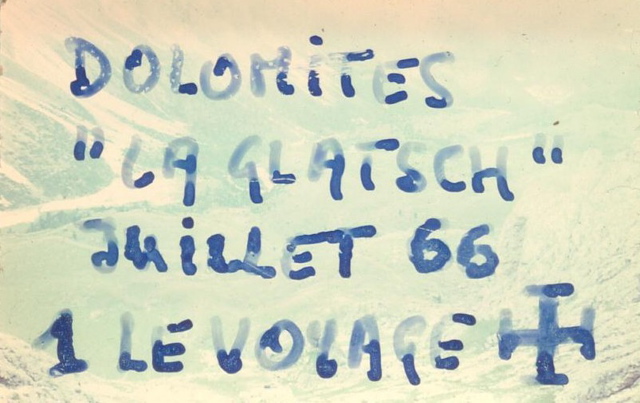 DOLOMITES
"LA GLATSCH"
JUILLET 66
1 LE VOYAGE